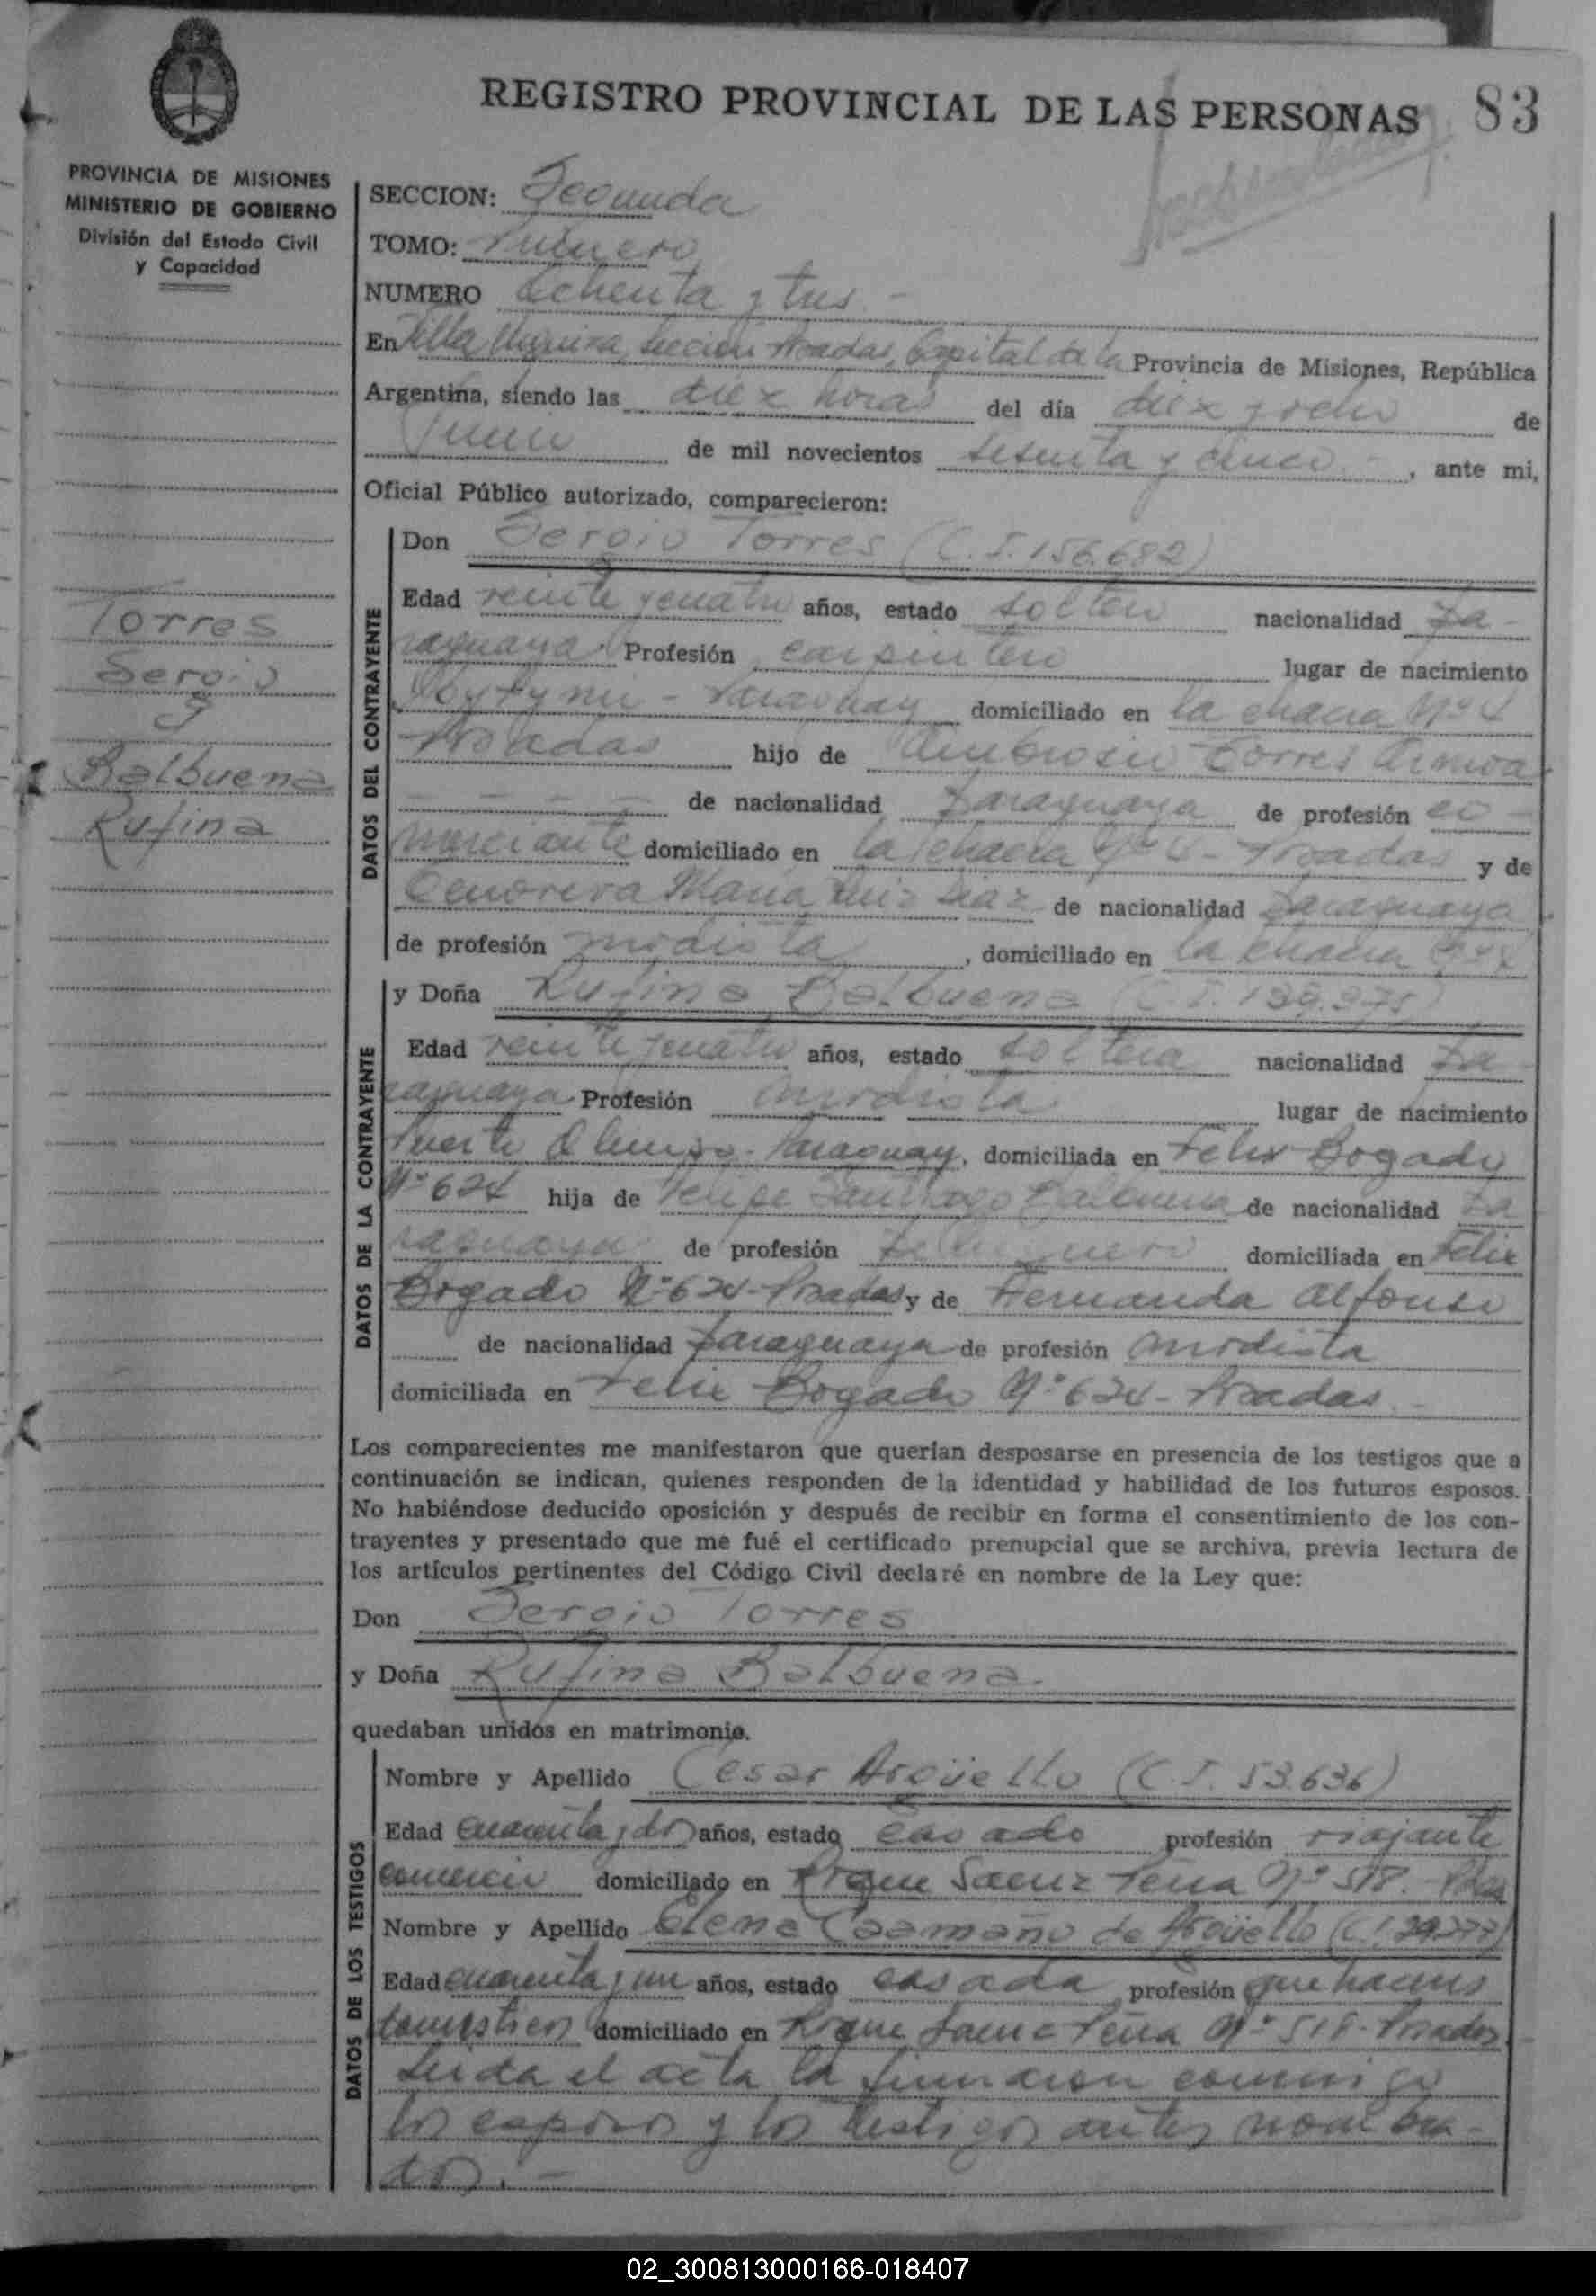 REGISTRO PROVINCIAL DE LAS PERSONAS 83
PROVINCIA DE MISIONES
MINISTERIO DE GOBIERNO
División del Estado Civil
y Capacidad
Torres
Sergio
y
Balbuena
Rufina
SECCION: Segunda
TOMO: Primero
NUMERO Ochenta y tres -
En Villa Urquiza, sección Posadas, Capital de la Provincia de Misiones, República
Argentina, siendo las diez horas del día diez y ocho de
Junio de mil novecientos sesenta y cinco - , ante mi,
Oficial Público autorizado, comparecieron:
DATOS DEL CONTRAYENTE
Don Sergio Torres (C.I. 156.682)
Edad veinte y cuatro años, estado soltero nacionalidad pa-
raguaya Profesión carpintero lugar de nacimiento
- Paraguay domiciliado en la chacra Nº 4
Posadas hijo de Ambrosio Torres Armoa
- - - - de nacionalidad paraguaya de profesión co-
merciante domiciliado en la chacra Nº 4 - Posadas y de
Genoveva María Díaz de nacionalidad paraguaya
de profesión modista , domiciliado en la chacra Nº 4
DATOS DE LA CONTRAYENTE
y Doña Rufina Balbuena (C.I. 139.975)
Edad veinte y cuatro años, estado soltera nacionalidad pa-
raguaya Profesión modista lugar de nacimiento
Puerto - Paraguay, domiciliada en Felix Bogado
Nº 624 hija de Felipe Santiago Balbuena de nacionalidad pa-
raguaya de profesión peluquero domiciliada en Felix
Bogado Nº 624 - Posadas y de Fernanda Alfonso
de nacionalidad paraguaya de profesión modista
domiciliada en Felix Bogado Nº 624 - Posadas. -
Los comparecientes me manifestaron que querían desposarse en presencia de los testigos que a
continuación se indican, quienes responden de la identidad y habilidad de los futuros esposos.
No habiéndose deducido oposición y después de recibir en forma el consentimiento de los con-
trayentes y presentado que me fué el certificado prenupcial que se archiva, previa lectura de
los artículos pertinentes del Código Civil declaré en nombre de la Ley que:
Don Sergio Torres
y Doña Rufina Balbuena
quedaban unidos en matrimonio.
DATOS DE LOS TESTIGOS
Nombre y Apellido Cesar Argüello (C.I. 53.636)
Edad cuarenta y dos años, estado casado profesión viajante
comercio domiciliado en Roque Saenz Peña Nº 518. - Pdas
Nombre y Apellido Elena Caamaño de Argüello (C.I. 29.277)
Edad cuarenta y un años, estado casada profesión quehaceres
domésticos domiciliado en Roque Saenz Peña Nº 518 - Posadas.
Leida el acta la firmaron conmigo
los esposos y los testigos antes nombra-
dos. -
02_300813000166-018407